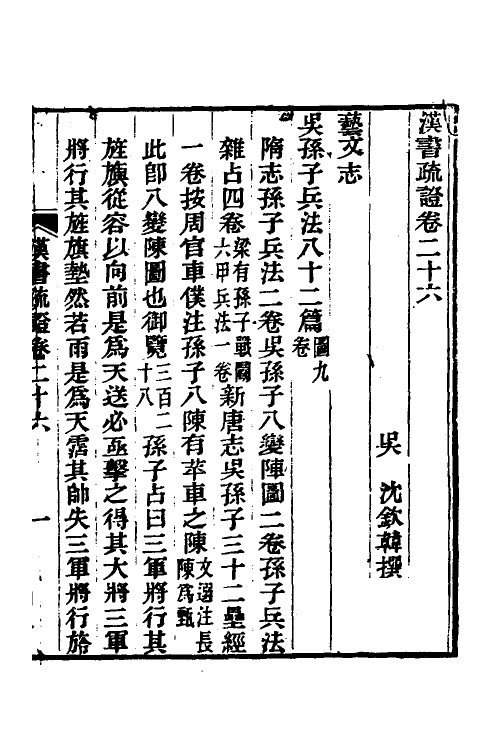 漢書疏證卷二十六
吳 沈欽韓撰
藝文志
吳孫子兵法八十二篇圖九卷
隋志孫子兵法二卷吳孫子八變陣圖二卷孫子兵法
雜占四卷梁有孫子戰鬭六甲兵法一卷新唐志吳孫子三十二壘經
一卷按周官車僕注孫子八陳有苹車之陳文選注長陳為甄
此卽八變陳圖也御覽三百二十八孫子占曰三軍將行其
旌旗從容以向前是為天送必亟擊之得其大將三軍
將行其旌旗墊然若雨是為天霑其帥失三軍將行旍
漢書疏證卷二十六 一